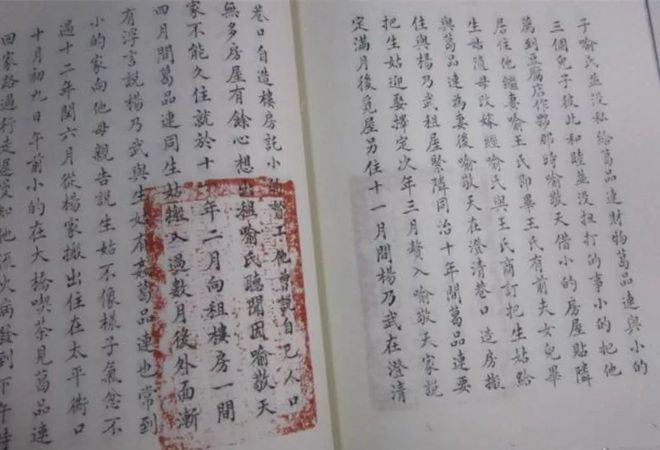 子喻氏並沒私給葛品連財物葛品連與小的
三個兒子彼此和睦並沒扭打的事小的把他
薦到豆腐店作夥那時喻敬天借小的房屋貼隣
居住他繼妻喻王氏即畢王氏有前夫女兒畢
生姑隨母改嫁經喻氏與王氏商訂把生姑給
與葛品連為妻後喻敬天在澄清巷口造房搬
住與楊乃武租屋緊隣同治十年間葛品連要
把生姑迎娶擇定次年三月贅入喻敬天家說
定滿月後覓屋另住十一月間楊乃武在澄清
巷口自造樓房託小的督工他曾說自己人口
無多房屋有餘心想出租喻氏聽聞因喻敬天
家不能久住就於十一年二月向租樓房一間
四月間葛品連同生姑搬入過數月後外面漸
有浮言說楊乃武與生姑有姦葛品連也常到
小的家向他母親告說生姑不像樣子氣忿不
過十二年閏六月從楊家搬出住在太平衖口
十月初九日午前小的在大橋喫茶見葛品連
回家路過行走遲慢知他流火病發到下午時